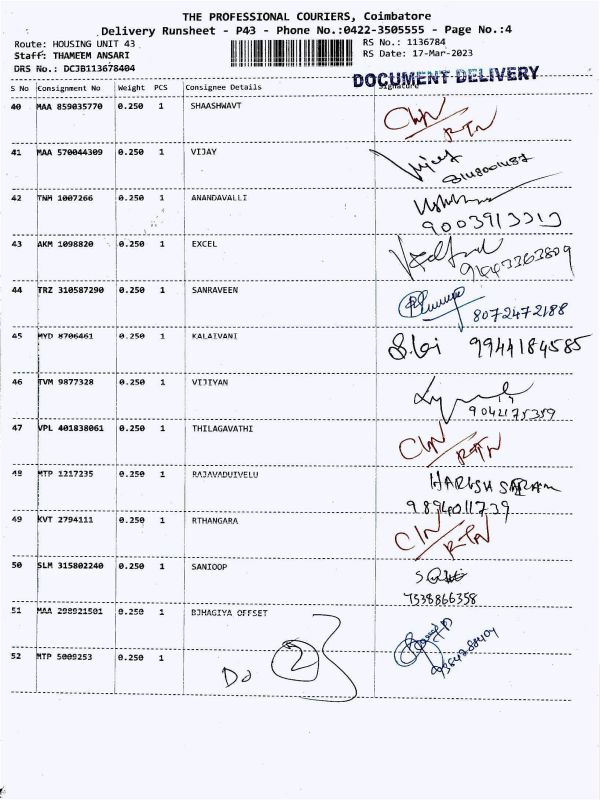 THE PROFESSIONAL COURIERS, Coimbatore
Delivery Runsheet - P43 - Phone No.:0422-3505555 - Page No.:4
Route: HOUSING UNIT 43 RS No.: 1136784
Staff: THAMEEM ANSARI RS Date: 17-Mar-2023
DRS No.: DCJB113678404
DOCUMENT DELIVERY
S No Consignment No Weight PCS Consignee Details Signature
40 MAA 859035770 0.250 1 SHAASHWAVT
RTN
41 MAA 570044309 0.250 1 VIJAY
42 TNM 1007266 0.250 1 ANANDAVALLI
43 AKM 1098820 0.250 1 EXCEL
94443363809
44 TRZ 310587290 0.250 1 SANRAVEEN
8072472188
45 MYD 8706461 0.250 1 KALAIVANI
9944184585
46 TVM 9877328 0.250 1 VIJIYAN
9042175359
47 VPL 401838061 0.250 1 THILAGAVATHI
RTN
48 MTP 1217235 0.250 1 RAJAVADUIVELU
9894011739
49 KVT 2794111 0.250 1 RTHANGARA
RTN
50 SLM 315802240 0.250 1 SANIOOP
7538866358
51 MAA 298921501 0.250 1 BJHAGIYA OFFSET
52 MTP 5009253 0.250 1
Do 2